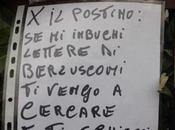 X IL POSTINO:
SE MI INBUCHI
LETTERE DI
BERZUSCOMI
TI VENGO A
CERCARE
E TI